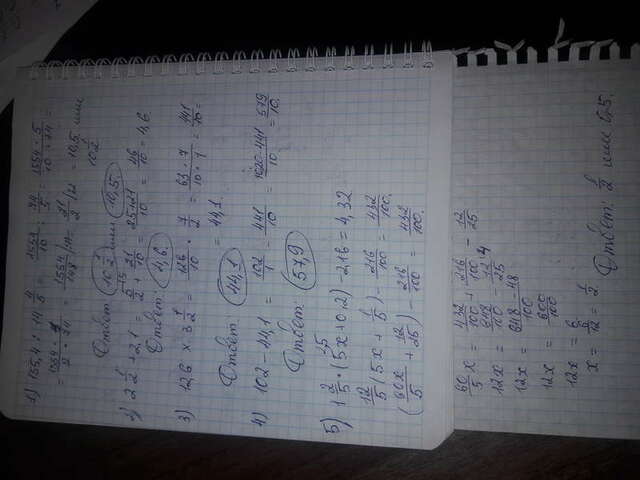 1) 155,4 : 14 4/5 = 1554/10 : 74/5 = 1554 · 5 / 10 · 74 =
= 1554 · 1 / 2 · 74 = 1554/148 = 21/2 = 10,5 или
10 1/2
Ответ: 10 1/2 или 10,5.
2) 2 1/2 + 2,1 = 5/2 + 21/10 = 25+21/10 = 46/10 = 4,6.
Ответ: 4,6.
3) 12,6 × 3 1/2 = 126/10 · 7/2 = 63 · 7 / 10 · 1 = 441/10 =
= 44,1.
Ответ. 44,1
4) 102 – 44,1 = 102/1 – 441/10 = 1020-441/10 = 579/10.
Ответ: 57,9
5) 1 2/5 · (5x + 0,2) – 2,16 = 4,32
12/5 (5x + 1/5) – 216/100 = 432/100.
(60x/5 + 12/25) – 216/100 = 432/100.
60/5 x = 432/100 + 216/100 – 12/25.
12x = 648/100 – 12/25 4
12x = 648 – 48/100
12x = 600/100
12x = 6
x = 6/12 = 1/2. Ответ: 1/2 или 0,5.